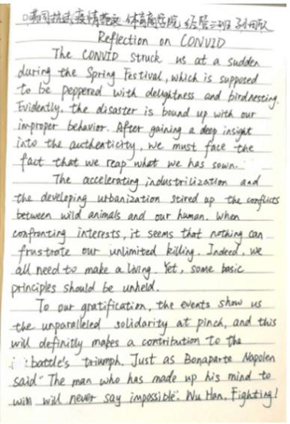 英国抗击疫情英文 体育商学院 经管三班
Reflection on CONVID
The CONVID struck us at a sudden
during the Spring Festival, which is supposed
to be peppered with delightness and birdnesting.
Evidently, the disaster is bound up with our
improper behavior. After gaining a deep insight
into the authenticity, we must face the
fact that we reap what we has sown.
The accelerating industrilization and
the developing urbanization stired up the conflicts
between wild animals and our human. When
confronting interests, it seems that nothing can
frustrate our unlimited killing. Indeed, we
all need to make a living. Yet, some basic
principles should be unheld.
To our gratification, the events show us
the unparalleled solidarity at pinch, and this
will definitly makes a contribution to the
battle's triumph. Just as Bonaparte Napolen
said "The man who has made up his mind to
win will never say impossible". Wu Han. Fighting!